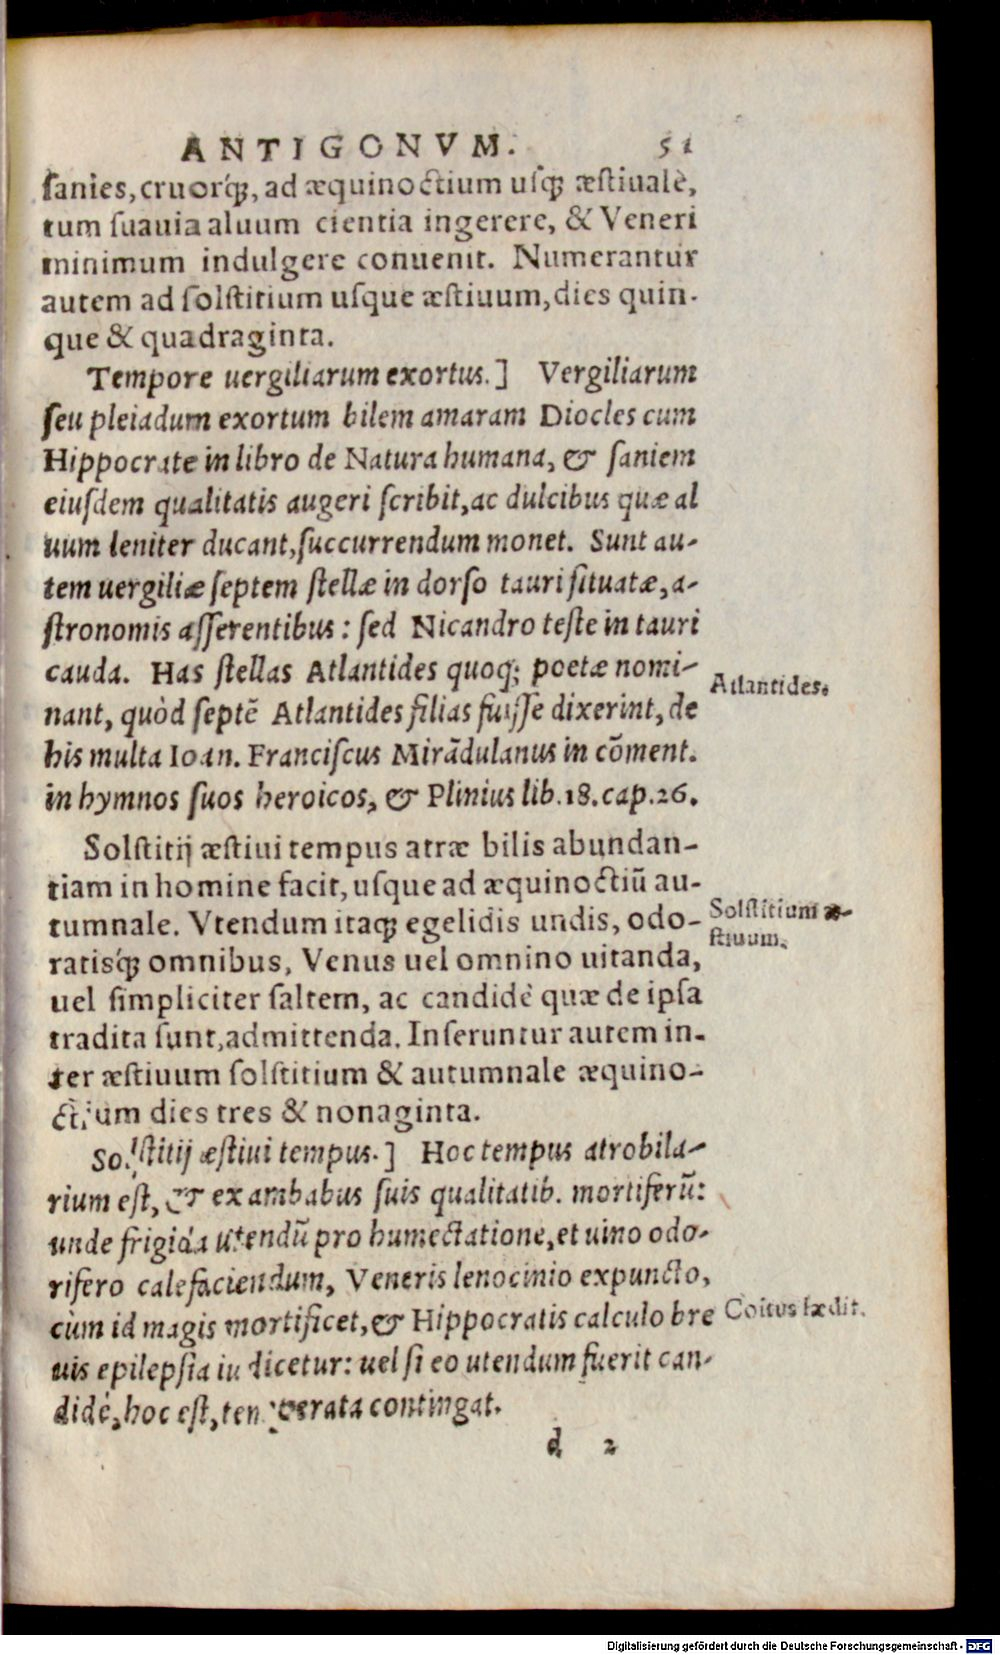 ANTIGONVM. 51
ſanies, cruorq́ꝫ, ad æquinoctium uſqꝫ æſtiualè,
tum ſuauia aluum cientia ingerere, & Veneri
minimum indulgere conuenit. Numerantur
autem ad ſolſtitium uſque æſtiuum, dies quin-
que & quadraginta.
Tempore uergiliarum exortus.] Vergiliarum
ſeu pleiadum exortum bilem amaram Diocles cum
Hippocrate in libro de Natura humana, & ſaniem
eiuſdem qualitatis augeri ſcribit, ac dulcibus quæ al
uum leniter ducant, ſuccurrendum monet. Sunt au-
tem uergiliæ ſeptem ſtellæ in dorſo tauri ſituatæ, a-
ſtronomis aſſerentibus: ſed Nicandro teſte in tauri
cauda. Has ſtellas Atlantides quoq; poetæ nomi-
nant, quòd ſeptē Atlantides filias fuiſſe dixerint, de
his multa Ioan. Franciſcus Mirādulanus in cōment.
in hymnos ſuos heroicos, & Plinius lib.18.cap.26.
Atlantides.
Solſtitij æſtiui tempus atræ bilis abundan-
tiam in homine facit, uſque ad æquinoctiū au-
tumnale. Vtendum itaqꝫ egelidis undis, odo-
ratisq́ꝫ omnibus, Venus uel omnino uitanda,
uel ſimpliciter ſaltem, ac candidè quæ de ipſa
tradita ſunt, admittenda. Inſeruntur autem in-
ter æſtiuum ſolſtitium & autumnale æquino-
ctium dies tres & nonaginta.
Solſtitium æ-
ſtiuum.
Solſtitij æſtiui tempus.] Hoc tempus atrobila-
rium eſt, & ex ambabus ſuis qualitatib. mortiferū:
unde frigida utendū pro humectatione, et uino odo-
rifero calefaciendum, Veneris lenocinio expuncto,
cùm id magis mortificet, & Hippocratis calculo bre
uis epilepſia iudicetur: uel ſi eo utendum fuerit can-
didè, hoc eſt, temperata contingat.
Coitus lædit.
d 2
Digitalisierung gefördert durch die Deutsche Forschungsgemeinschaft - DFG